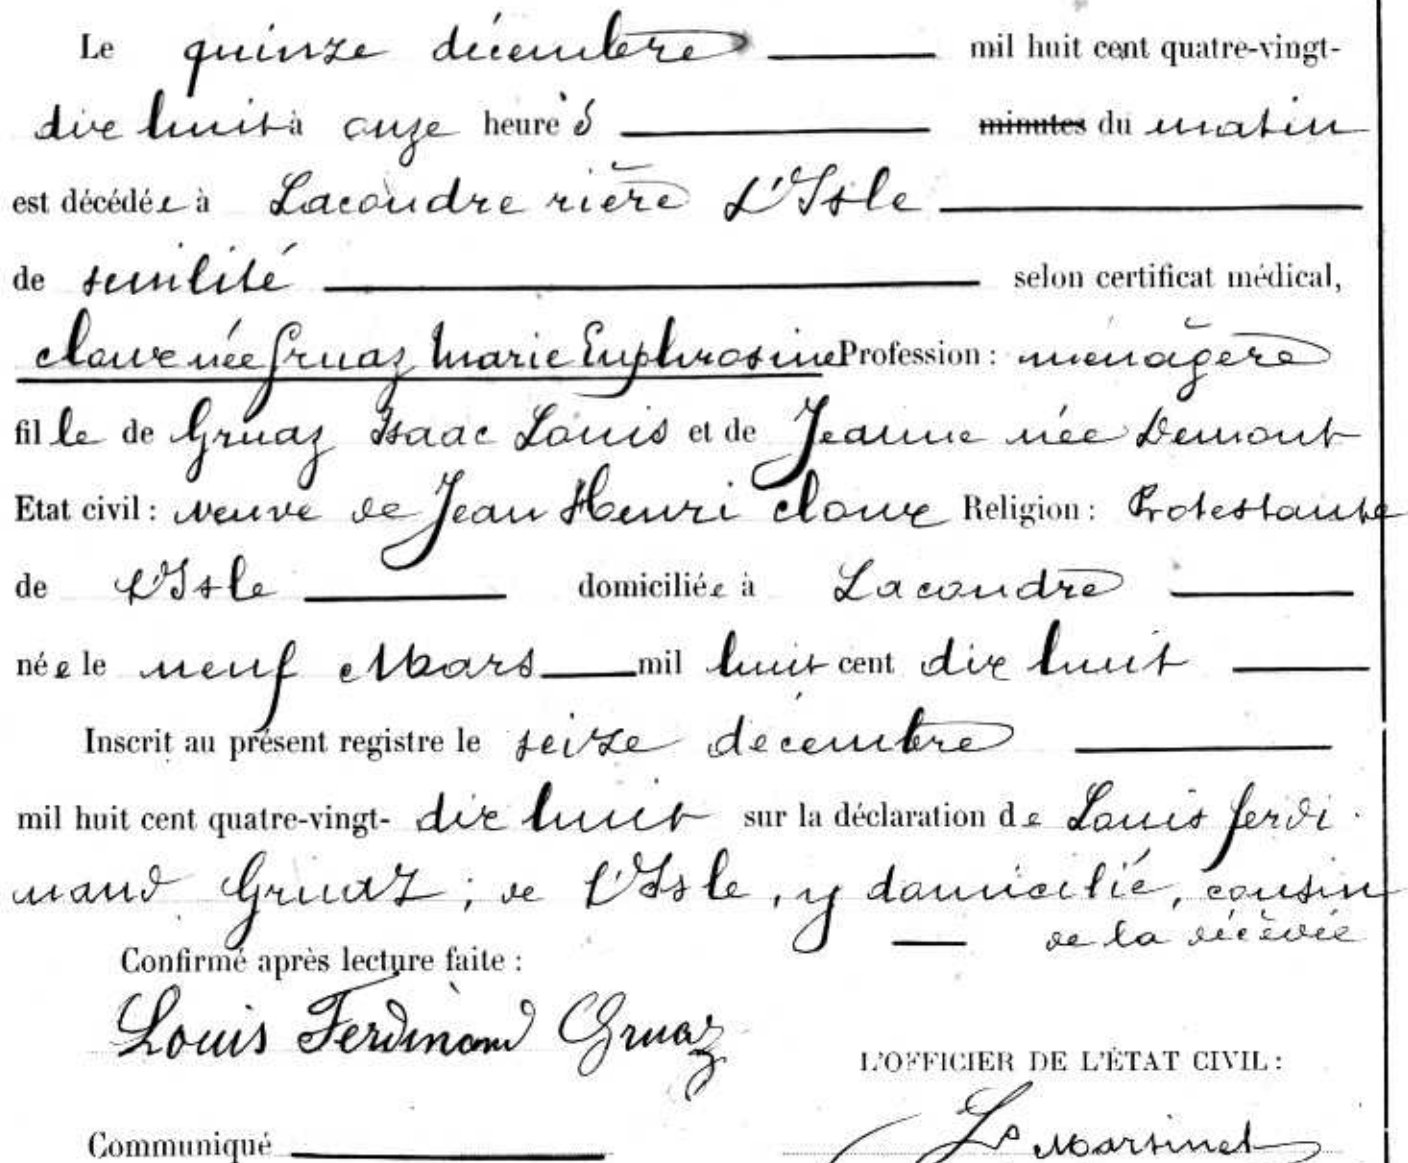 Le quinze décembre mil huit cent quatre-vingt-
dix huit à onze heures minutes du matin
est décédée à Lacoudre rière L'Isle
de sénilité selon certificat médical,
cloux née Gruaz Marie Euphrosine Profession : ménagère
fille de Gruaz Isaac Louis et de Jeanne née Demont
Etat civil : veuve de Jean Henri cloux Religion : Protestante
de L'Isle domiciliée à Lacoudre
née le neuf Mars mil huit cent dix huit
Inscrit au présent registre le seize décembre
mil huit cent quatre-vingt- dix huit sur la déclaration de Louis ferdi
nand Gruaz ; de L'Isle, y domicilié, cousin
de la décédée
Confirmé après lecture faite :
Louis Ferdinand Gruaz
L'OFFICIER DE L'ÉTAT CIVIL :
Communiqué Ls Martinet